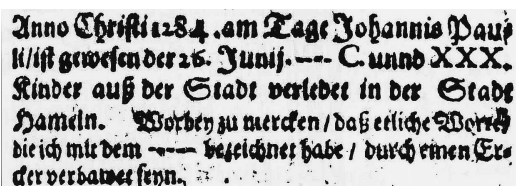 Anno Christi 1284. am Tage Johannis Pau⸗
li / ist gewesen der 26. Junij. ---- C. unnd XXX.
Kinder auß der Stadt verlebet in der Stadt
Hameln. Worbey zu mercken / daß etliche Worte
die ich mit dem ---- bezeichnet habe / durch einen Er⸗
cker verbawet seyn.